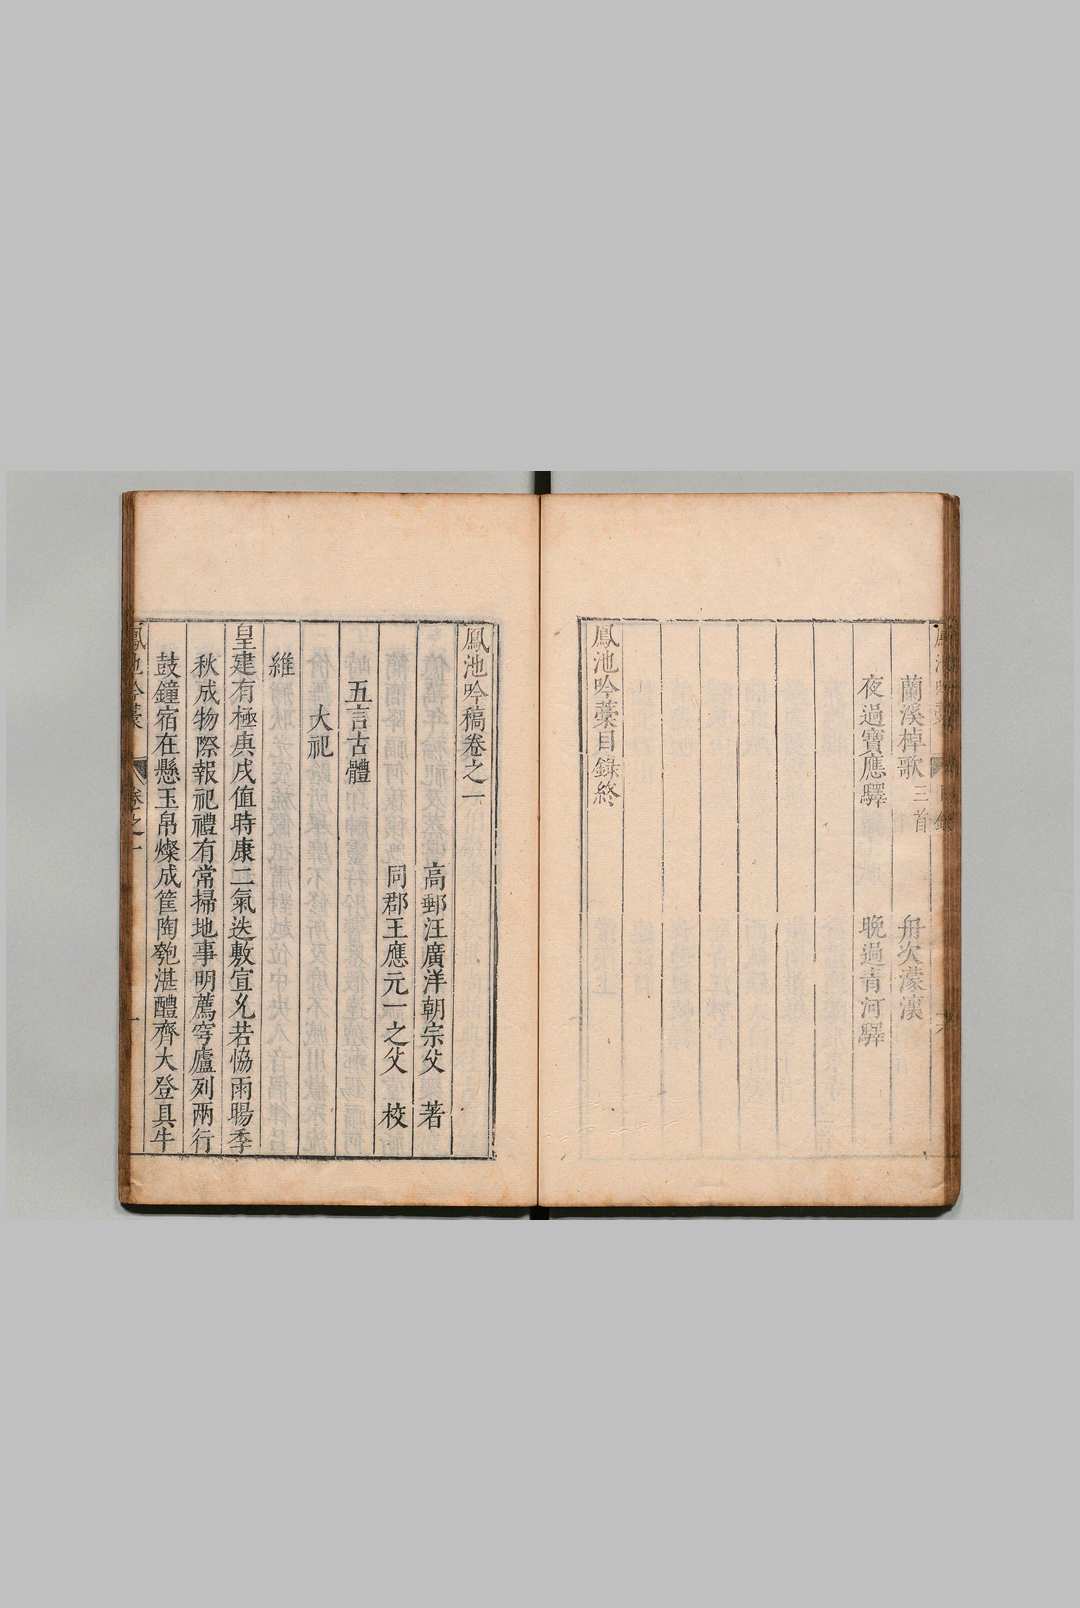 蘭溪棹歌三首　舟次濛濱
夜過寶應驛　晚過青河驛
鳳池吟藁目錄終
鳳池吟稿卷之一
高郵汪廣洋朝宗父　著
同郡王應元一之父　校
五言古體
大祀
維
皇建有極庚戌值時康二氣迭敷宣允若恊雨暘季
秋成物際報祀禮有常掃地事明薦穹廬列兩行
鼓鐘宿在懸玉帛燦成筐陶匏湛醴齊大登具牛
鳳池吟藁　卷之一　一